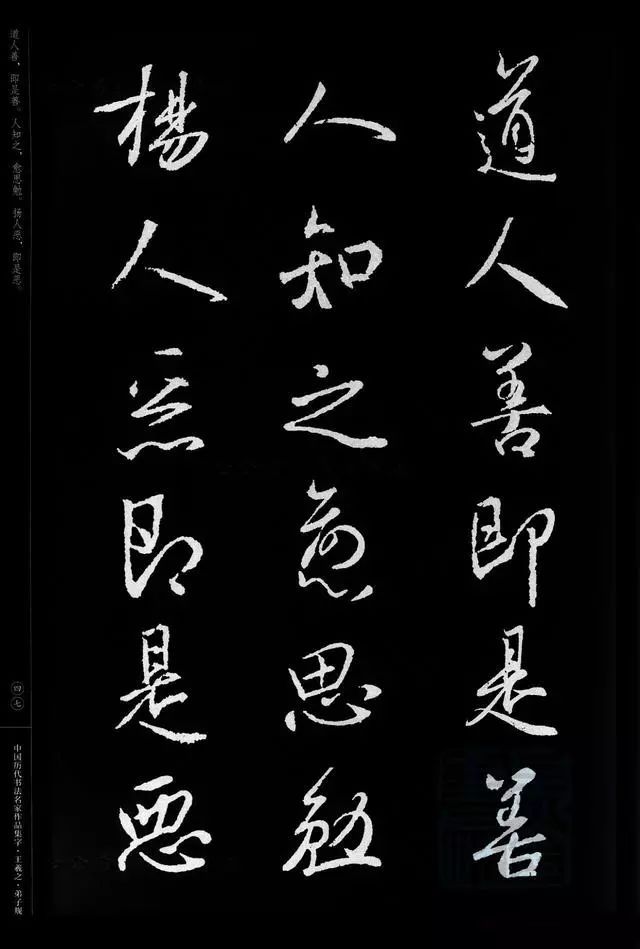 道人善即是善
人知之愈思勉
楊人惡即是惡
道人善，即是善。人知之，愈思勉。扬人恶，即是恶。
四七
中国历代书法名家作品集字·王羲之·弟子规